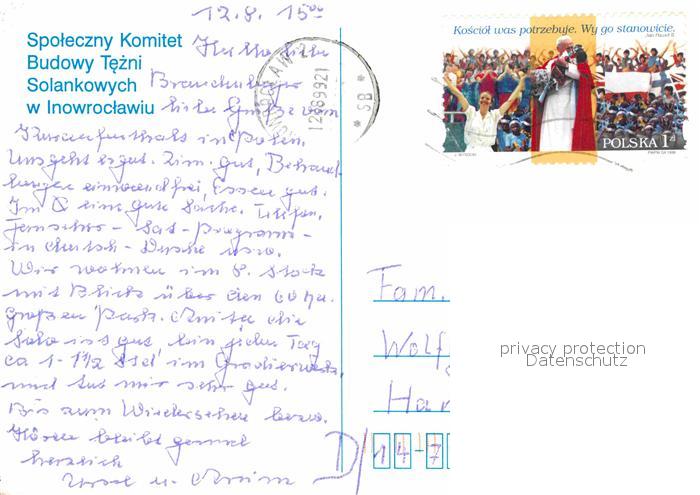 12.8. 15⁰⁰
Społeczny Komitet
Budowy Tężni
Solankowych
w Inowrocławiu
Hallo liebe
liebe Grüße vom
Kuraufenthalt in Polen.
Uns geht es gut. Zim. gut, Behand-
lungen einwandfrei, Essen gut.
Im eine gute Sache. Telefon,
Fernseher - Sat-Programm -
in deutsch - Dusche usw.
Wir wohnen im 8. Stock
mit Blick über den 60 ha
großen Park. die
Sole ist gut bin jeden Tag
ca 1-1½ Std im Gradierwerk,
und tut mir sehr gut.
Bis zum Wiedersehen bezw.
Hören bleibt gesund
herzlich
u.
12.8.99.21
* SB *
Kościół was potrzebuje. Wy go stanowicie.
Jan Paweł II
POLSKA 1zł
Fam.
Wolf
Har
D/14-7
privacy protection
Datenschutz